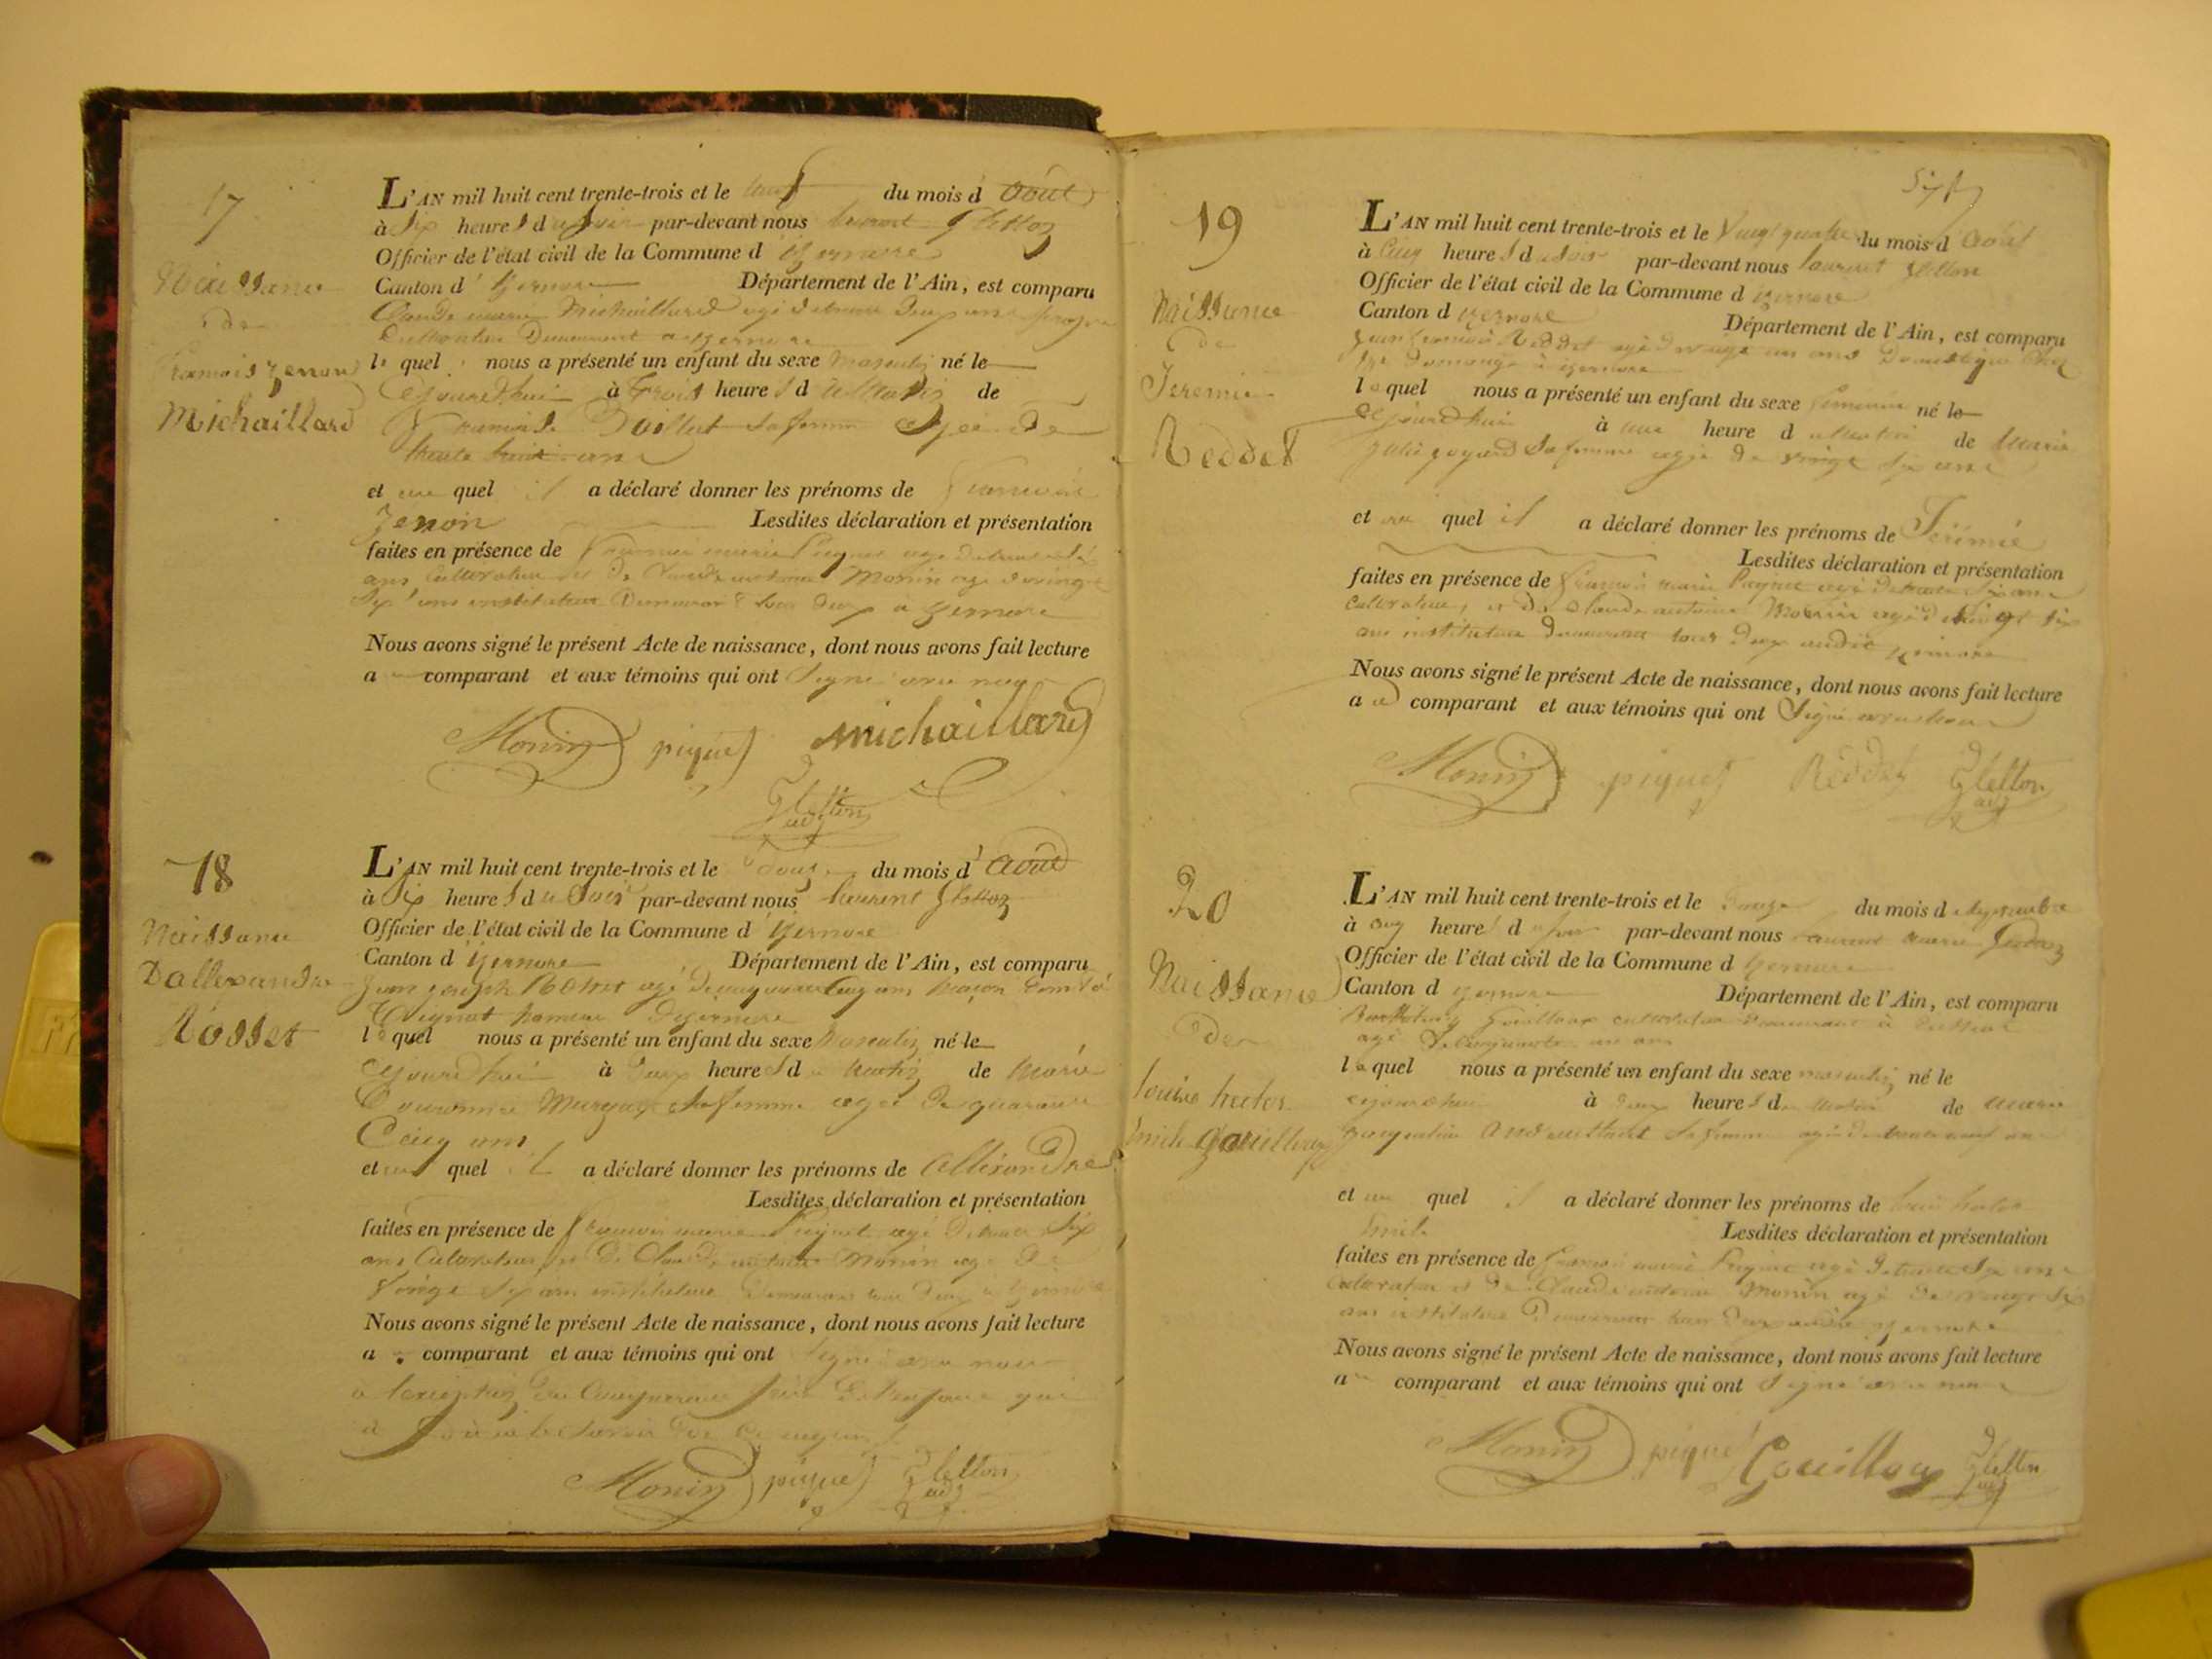 17
Naissance
de
François Zenon
Michaillard
L'AN mil huit cent trente-trois et le neuf du mois d'Août
à Six heures du Soir par-devant nous Laurent Gletton
Officier de l'état civil de la Commune d'Izernore
Canton d'Izernore Département de l'Ain, est comparu
Claude marie Michaillard agé de trente deux ans
Cultivateur Demeurant a izernore
lequel nous a présenté un enfant du sexe Masculin né le
ajourdhui à trois heures du Matin de
sa femme Agée de
trente huit ans
et au quel il a déclaré donner les prénoms de François
Zenon Lesdites déclaration et présentation
faites en présence de François marie Piquet agé de trente six
ans Cultivateur et de Claude antoine Monin agé de vingt
Six ans instituteur Demeurant tous deux à izernore
Nous avons signé le présent Acte de naissance, dont nous avons fait lecture
au comparant et aux témoins qui ont Signé avec nous
Monin piquet michaillard
Gletton
adj
18
Naissance
Dallexandre
Rosset
L'AN mil huit cent trente-trois et le douze du mois d'Août
à Six heures du Soir par-devant nous Laurent Gletton
Officier de l'état civil de la Commune d'Izernore
Canton d'Izernore Département de l'Ain, est comparu
Jean joseph Rosset agé de quarante Cinq ans Maçon
hameau Dizernore
lequel nous a présenté un enfant du sexe Masculin né le
ajourdhui à Deux heures du Matin de Marie
sa femme agée de quarante
Cinq ans
et au quel il a déclaré donner les prénoms de Allexandre
Lesdites déclaration et présentation
faites en présence de François marie Piquet agé de trente Six
ans Cultivateur et De Claude antoine Monin agé De
Vingt Six ans instituteur Demeurant tous deux à izernore
Nous avons signé le présent Acte de naissance, dont nous avons fait lecture
au comparant et aux témoins qui ont Signé avec nous
à lexception du Comparant père de lenfant qui
a
Monin piquet Gletton
adj
19
Naissance
de
Jeremie
Reddet
L'AN mil huit cent trente-trois et le Vingt quatre du mois d'Août
à Cinq heures du Soir par-devant nous Laurent Gletton
Officier de l'état civil de la Commune d izernore
Canton d izernore Département de l'Ain, est comparu
Jean François Reddet agé de vingt un ans Domestique Chez
à izernore
lequel nous a présenté un enfant du sexe né le
ajourdhui à une heure du Matin de Marie
sa femme agée de vingt Six ans
et au quel il a déclaré donner les prénoms de Jérémie
Lesdites déclaration et présentation
faites en présence de François marie Piquet agé de trente Six ans
Cultivateur, et De Claude antoine Monin agé de vingt six
ans instituteur Demeurant tous Deux audit izernore
Nous avons signé le présent Acte de naissance, dont nous avons fait lecture
au comparant et aux témoins qui ont Signé avec nous
Monin piquet Reddet Gletton
adj
20
Naissance
de
louise hector
Emile Gouilloux
L'AN mil huit cent trente-trois et le Douze du mois d
à heures du Soir par-devant nous Laurent marie Gletton
Officier de l'état civil de la Commune d izernore
Canton d izernore Département de l'Ain, est comparu
Gouilloux cultivateur Demeurant à
agé de ans
lequel nous a présenté un enfant du sexe masculin né le
ajourdhui à Deux heures du Matin de Marie
sa femme agée de trente neuf ans
et au quel il a déclaré donner les prénoms de louis hector
Emile Lesdites déclaration et présentation
faites en présence de François marie Piquet agé de trente Six ans
Cultivateur et De Claude antoine Monin agé De vingt Six
ans instituteur Demeurant tous Deux audit izernore
Nous avons signé le présent Acte de naissance, dont nous avons fait lecture
au comparant et aux témoins qui ont Signé avec nous
Monin piquet Gouilloux Gletton
adj